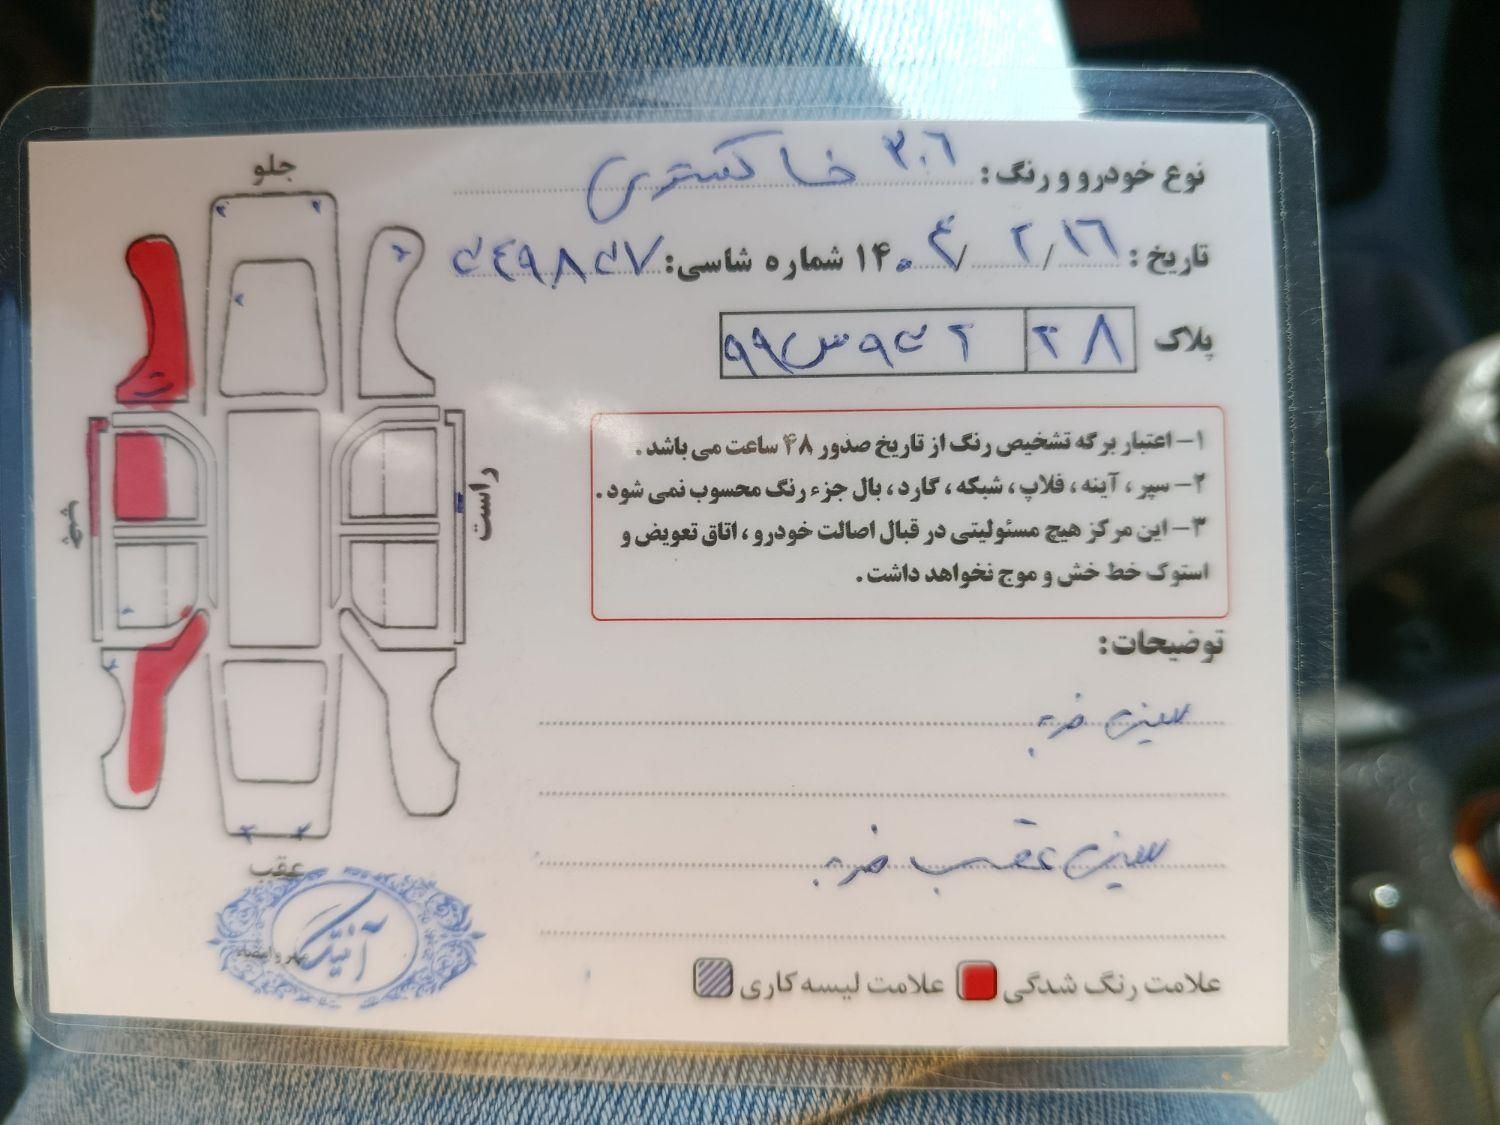 جلو
نوع خودرو و رنگ: ۲۰۶ خاکستری
تاریخ: ۱۶/ ۲/ ۱۴۰۴ شماره شاسی:
پلاک ۲۸
راست
چپ
۱- اعتبار برگه تشخیص رنگ از تاریخ صدور ۴۸ ساعت می باشد.
۲- سپر ، آینه ، فلاپ ، شبکه ، گارد ، بال جزء رنگ محسوب نمی شود.
۳- این مرکز هیچ مسئولیتی در قبال اصالت خودرو ، اتاق تعویض و
استوک خط خش و موج نخواهد داشت.
توضیحات:
سینی ضربه
سینی عقب ضربه
عقب
آنتیک
مهر و امضاء
علامت رنگ شدگی علامت لیسه کاری